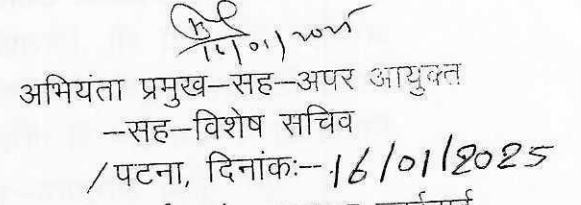 16/01/2025
अभियंता प्रमुख-सह-अपर आयुक्त
--सह-विशेष सचिव
/पटना, दिनांकः--16/01/2025